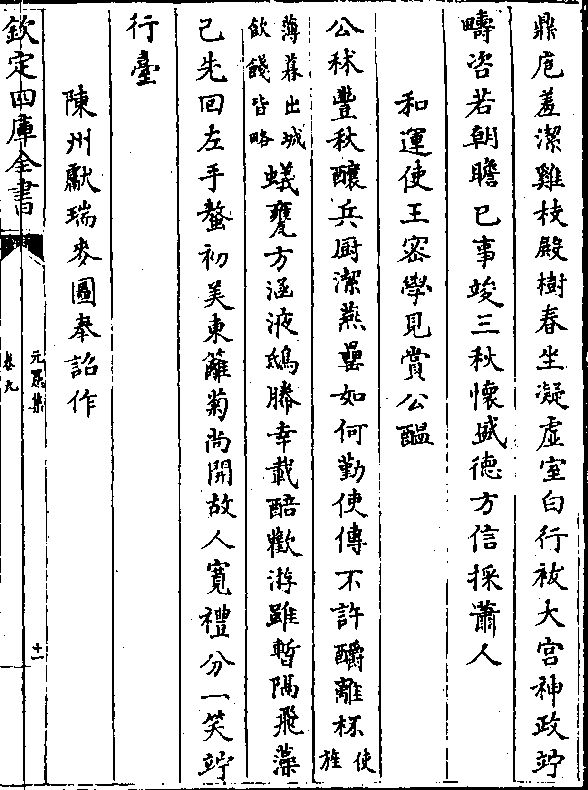 鼎庖羞潔雞枝殿樹春坐凝虛室白行祓大宮神政竚
疇咨若朝瞻已事竣三秋懷盛德方信採蕭人
和運使王密學見賞公醖
公秫豐秋釀兵厨潔燕罍如何勤使傳不許釂離杯使旌
薄暮出城飲餞皆略蟻甕方涵液鴟幐幸載醅歡游雖暫隔飛藻
已先回左手螯初美東籬菊尚開故人寛禮分一笑竚
行臺
陳州獻瑞麥圖奉詔作
欽定四庫全書
元憲集
卷九
十一